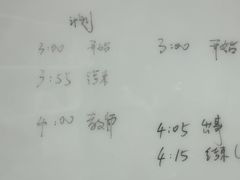 计划
3:00 开始
3:00 开始
3:55 结束
4:00 教师
4:05 出事
4:15 结束(